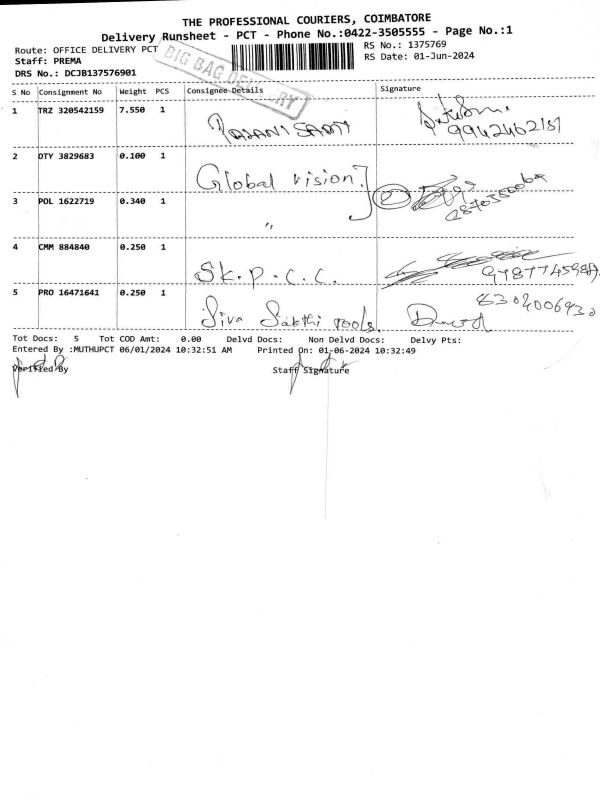 THE PROFESSIONAL COURIERS, COIMBATORE
Delivery Runsheet - PCT - Phone No.:0422-3505555 - Page No.:1
Route: OFFICE DELIVERY PCT
RS No.: 1375769
Staff: PREMA
RS Date: 01-Jun-2024
DRS No.: DCJB137576901
BIG BAG DELIVERY
S No Consignment No Weight PCS Consignee Details Signature
1 TRZ 320542159 7.550 1
9942462181
2 OTY 3829683 0.100 1 Global vision
3 POL 1622719 0.340 1 "
4 CMM 884840 0.250 1 Sk.p.c.c.
5 PRO 16471641 0.250 1 Siva Sakthi tools.
Tot Docs: 5 Tot COD Amt: 0.00 Delvd Docs: Non Delvd Docs: Delvy Pts:
Entered By :MUTHUPCT 06/01/2024 10:32:51 AM Printed On: 01-06-2024 10:32:49
Verified By Staff Signature